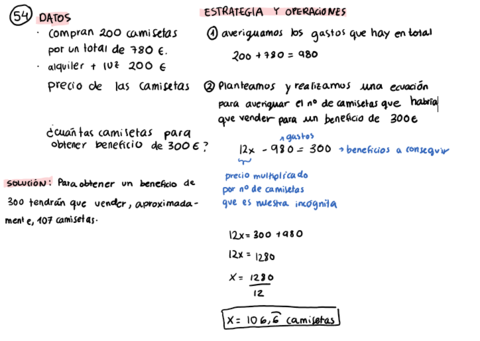 54 DATOS
· compran 200 camisetas
por un total de 780 €.
· alquiler + luz 200 €
precio de las camisetas
¿cuántas camisetas para
obtener beneficio de 300 €?
SOLUCIÓN: Para obtener un beneficio de
300 tendrán que vender, aproximada-
mente, 107 camisetas.
ESTRATEGIA Y OPERACIONES
1 averiguamos los gastos que hay en total
200 + 780 = 980
2 Planteamos y realizamos una ecuación
para averiguar el nº de camisetas que habría
que vender para un beneficio de 300€
gastos
12x - 980 = 300 → beneficios a conseguir
precio multiplicado
por nº de camisetas
que es nuestra incógnita
12x = 300 + 980
12x = 1280
x = 1280
12
x = 106,6̂ camisetas